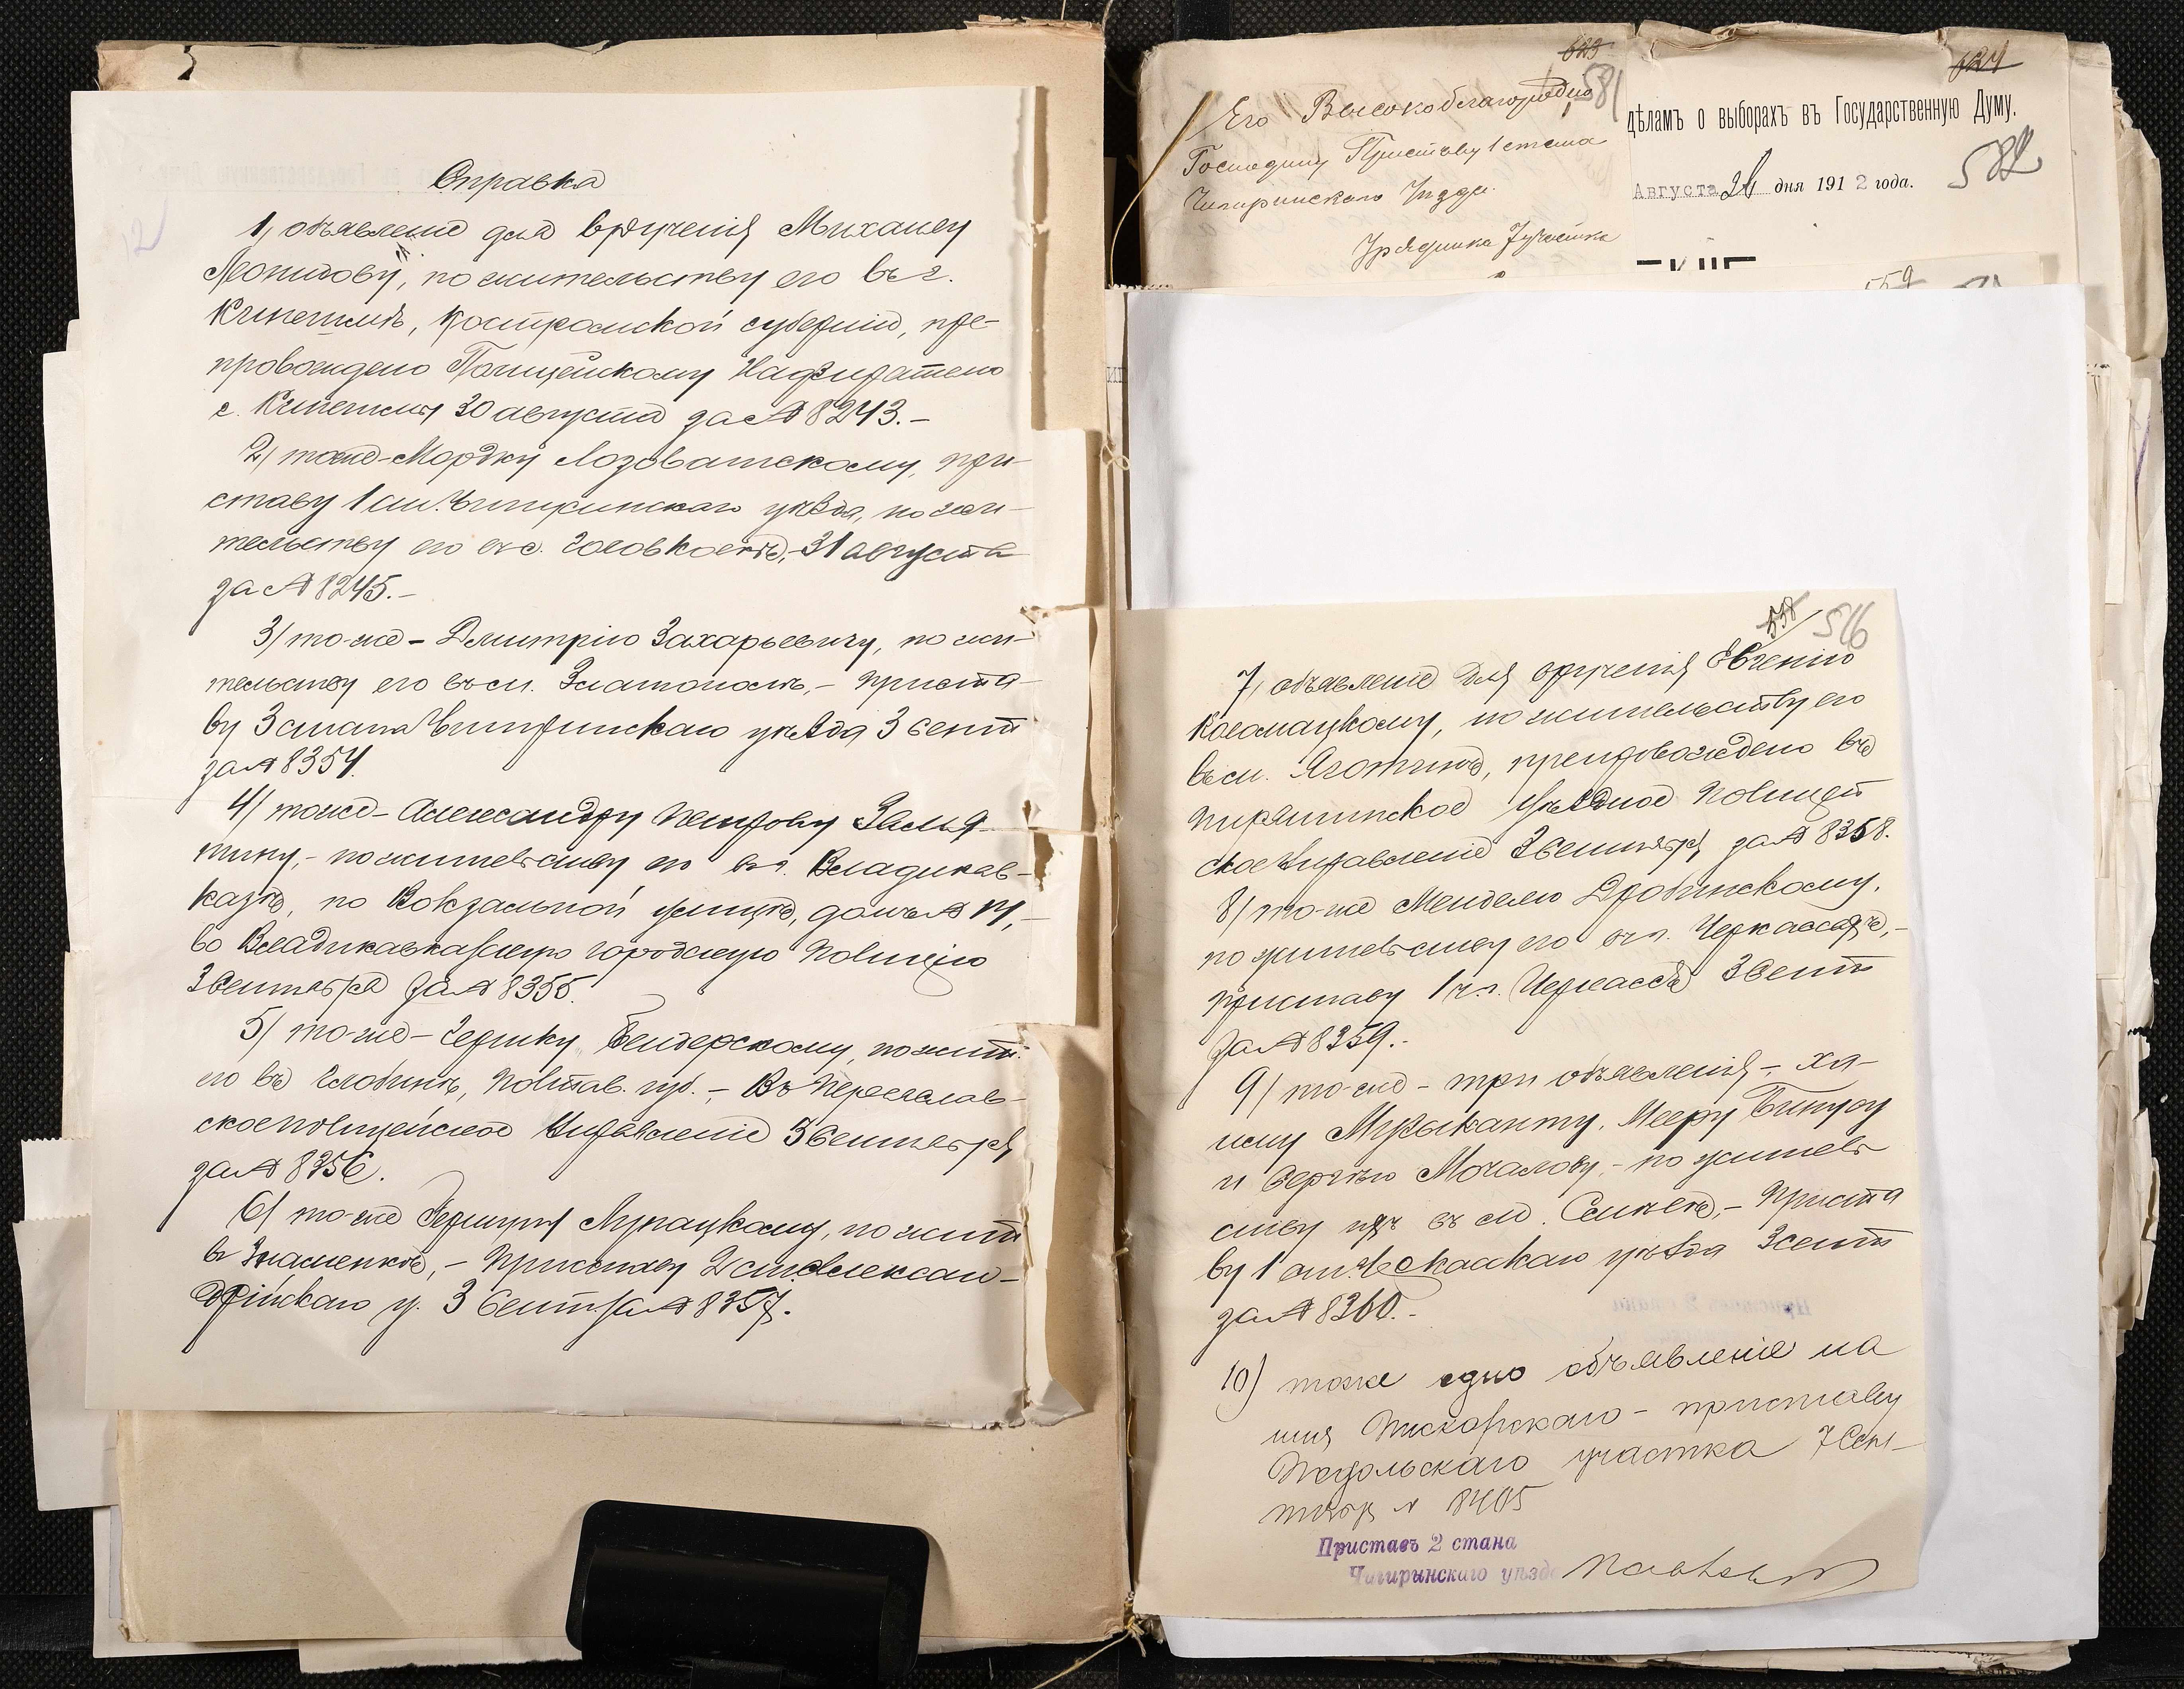 Справка
1, объявленіе для врученія Михаилу
Леонидову, по жительству его въ г.
Кинешмѣ, Костромской губерніи, пре-
провождено Полицейскому Надзирателю
г. Кинешмы 30 августа за № 8243.-
2) тоже-Мордку Лозоватскому, при-
ставу 1 ст. Чигиринскаго уѣзда, по жи-
тельству его въ с. Головковкѣ,-31 августа
за № 8245.-
3) то-же - Дмитрію Захарьевичу, по жи-
тельству его въ м. Златополѣ,- Приста-
ву 3 стана Чигиринскаго уѣзда 3 сент
за № 8354.
4) тоже- Александру Петрову
по жительству его въ г. Владикав-
казѣ, по Вокзальной улицѣ, домъ №
во Владикавказскую городскую Полицію
3 Сентября за № 8355.
5) то-же - Бендерскому, по жит.
его въ Глобинѣ, Полтав. губ. - Въ Переяслав-
ское полицейское Управленіе 3 Сентября
за № 8356.
6) то-же Лупацкому, по жит
въ Знаменкѣ, - Приставу 2 ст. Александ-
рійскаго у. 3 Сент. за № 8357.
623
581
Его Высокоблагородію
Господину Приставу 1 стана
Чигиринскаго Уѣзда.
Урядника 7 участка
624
дѣламъ о выборахъ въ Государственную Думу.
582
Августа 26 дня 1912 года.
559
558 516
7, объявленіе для врученія Евгенію
Коломацкому, по жительству его
въ м. Яготинѣ, препровождено въ
Пирятинское Уѣздное Полицей
ское Управленіе 3 Сентября за № 8358.
8) то-же Менделю Дробинскому,
по жительству его въ г. Черкассахъ,-
Приставу 1 ч. г. Черкассъ 3 Сент
за № 8359.-
9) то-же - три объявленія, - Ха-
иму Музыканту, Мееру
и Сергѣю Мочалову, - по житель
ству ихъ въ м. Смѣлѣ, - Приста
ву 1 ст. Черкасскаго уѣзда 3 сент
за № 8360.-
10) тоже одно объявленіе на
имя Пискорскаго - приставу
Подольскаго участка 7 Сен-
тября № 8405
Приставъ 2 стана
Чигиринскаго уѣзда